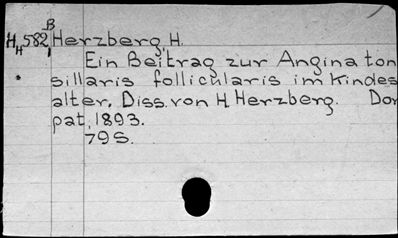 B
H 582 Herzberg, H.
H 1
Ein Beitrag zur Angina ton
sillaris follicularis im Kindes
alter. Diss. von H. Herzberg. Dor
pat, 1893.
79 S.